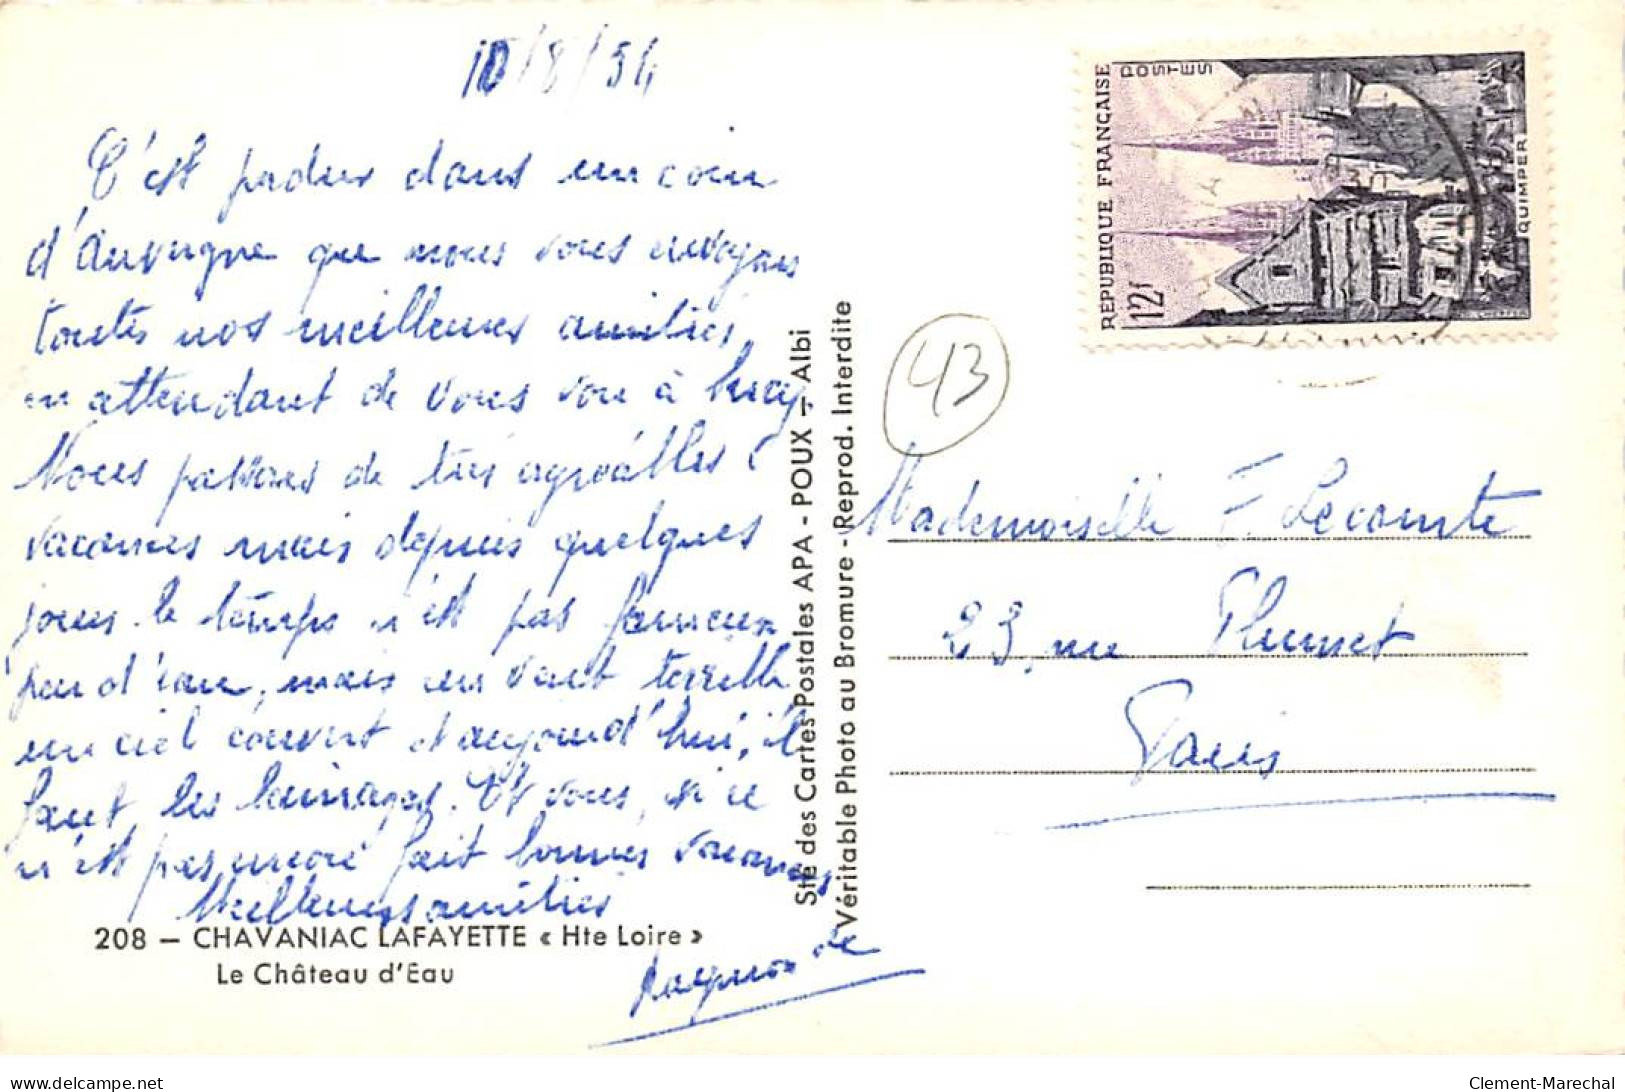 10/8/54
C'est perdus dans un coin
d'Auvergne que nous vous envoyons
toutes nos meilleures amitiés,
en attendant de vous voir à
Nous passons de très agréables
vacances mais depuis quelques
jours le temps n'est pas fameux
peu d'eau, mais un vent terrible
un ciel couvert et aujourd'hui, il
faut les lainages. Et vous, si ce
n'est pas encore fait bonnes vacances.
Meilleures amitiés
Raymonde
208 — CHAVANIAC LAFAYETTE « Hte Loire »
Le Château d'Eau
Sté des Cartes Postales APA - POUX — Albi
Véritable Photo au Bromure - Reprod. Interdite
REPUBLIQUE FRANÇAISE
POSTES
12f
QUIMPER
43
Mademoiselle F. Lecomte
23, rue Plumet
Paris
Clement-Marechal
delcampe.net